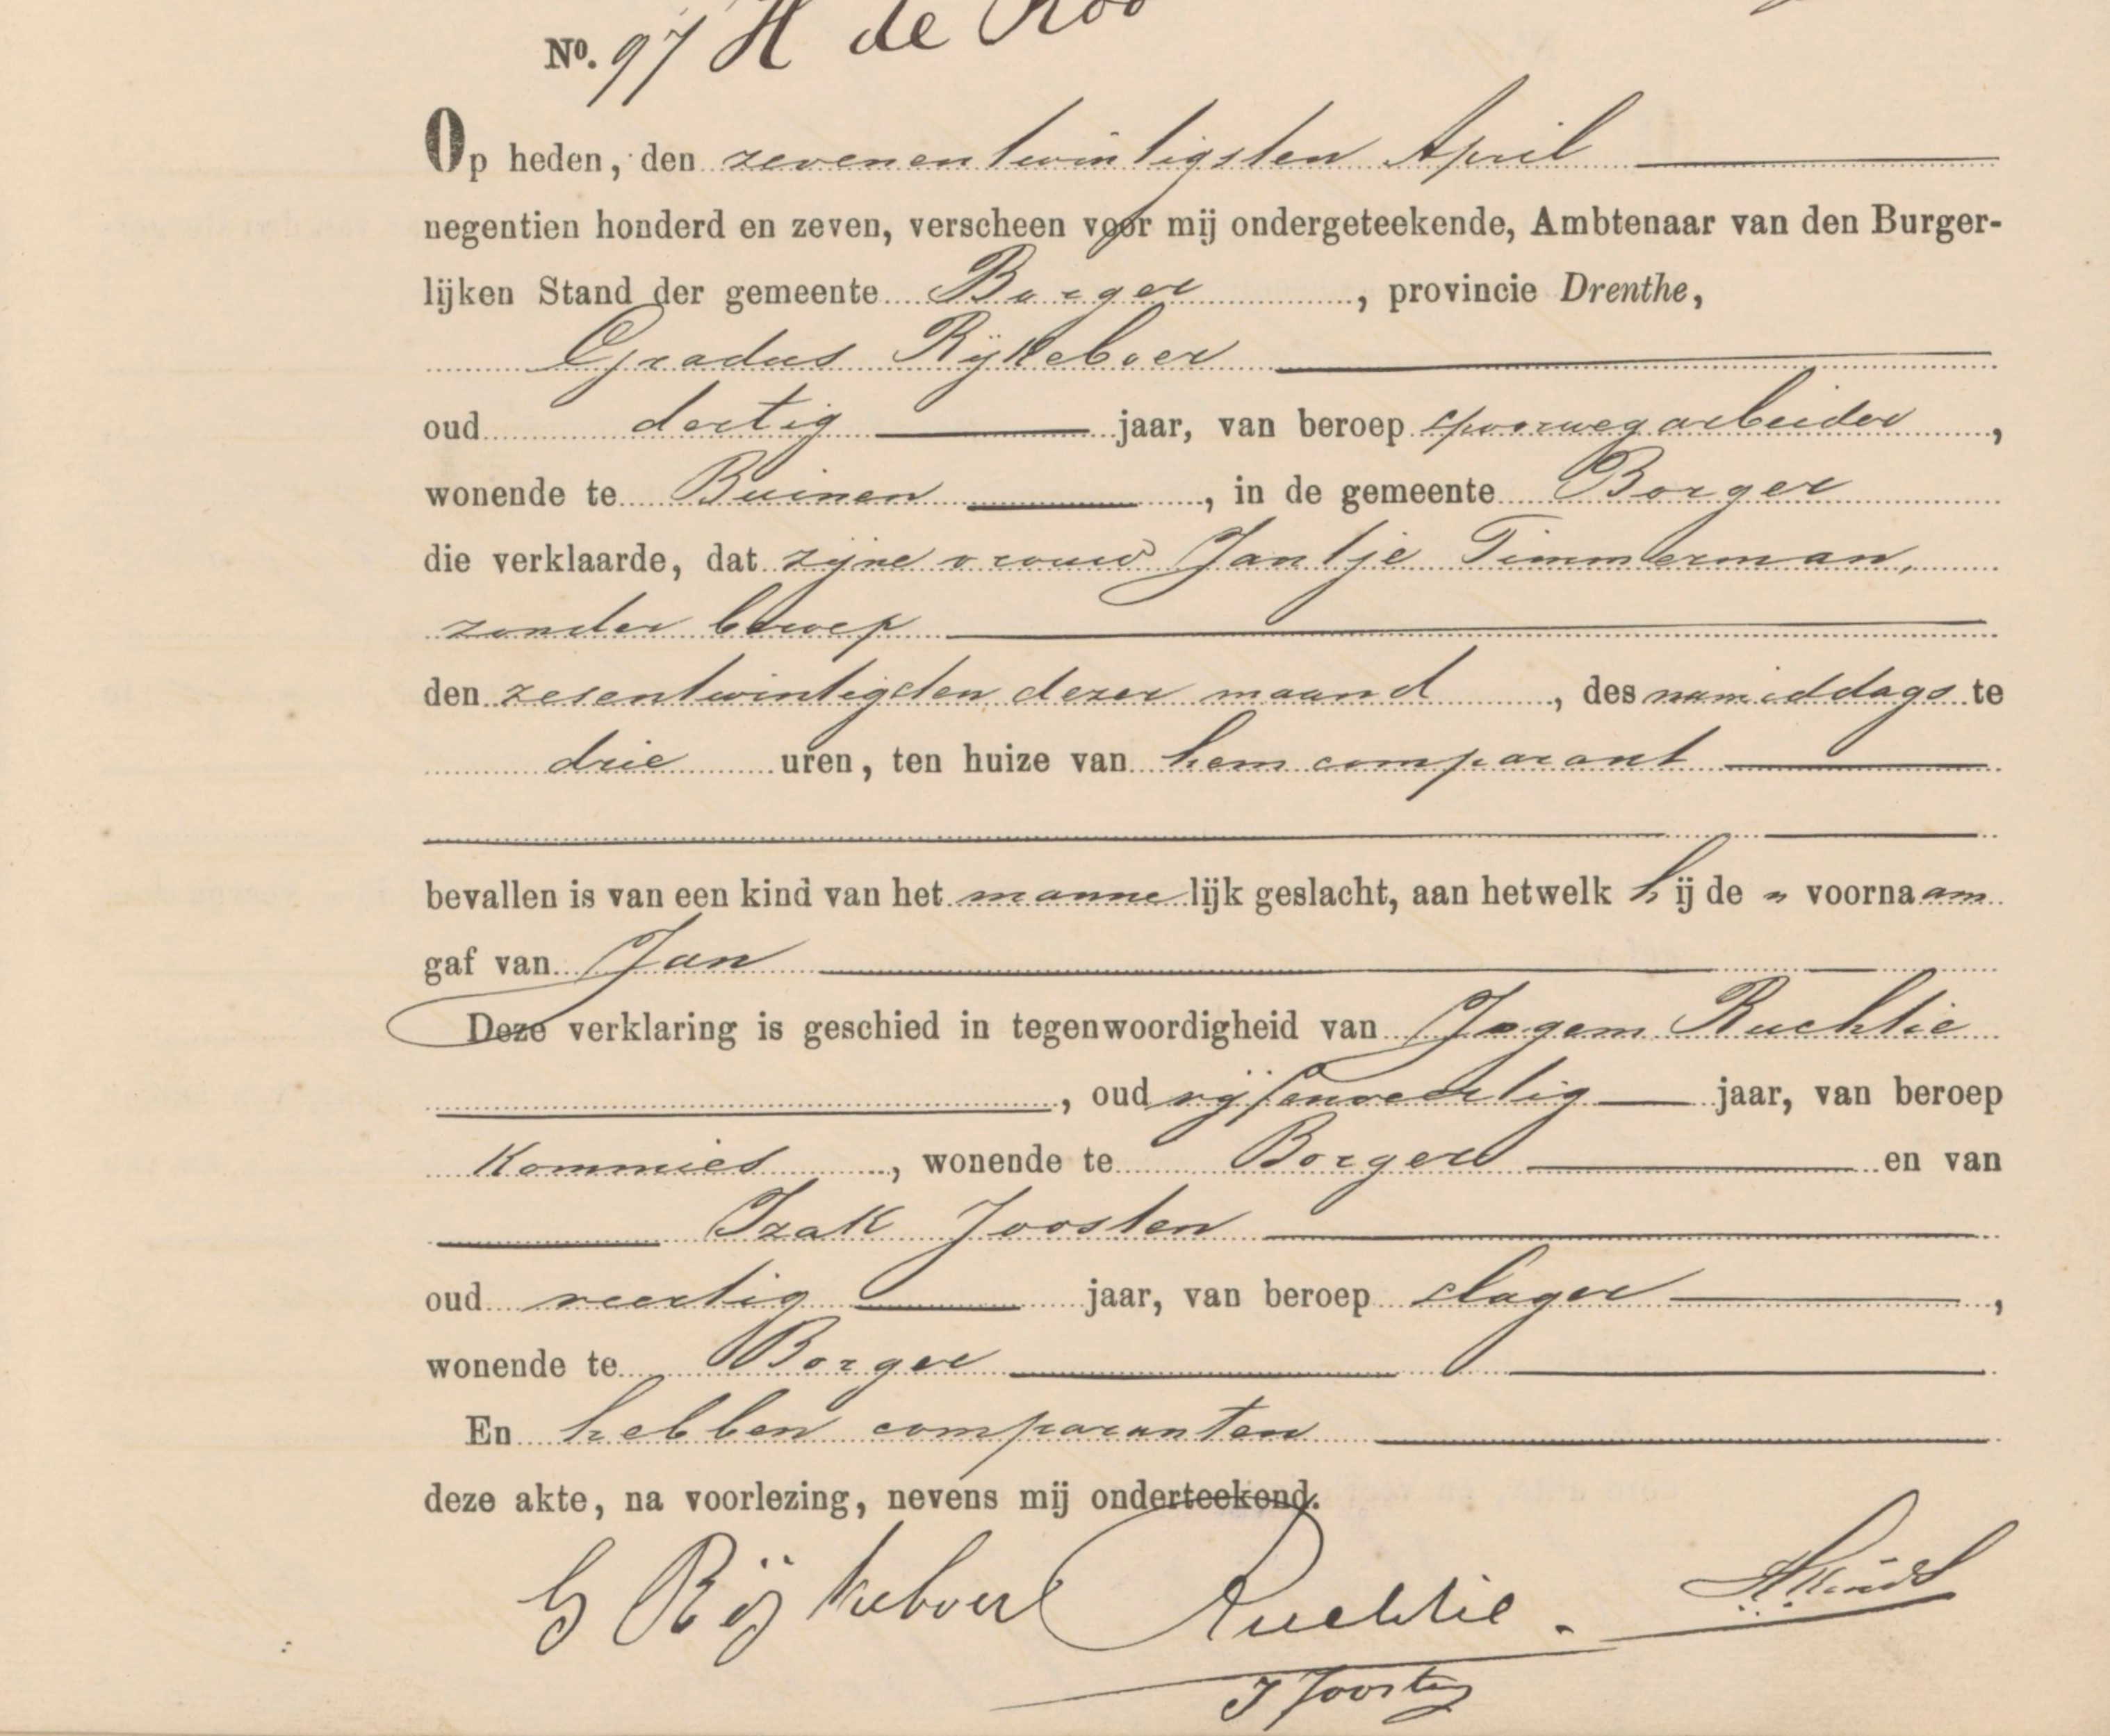 No. 97 H de Roo
Op heden, den zevenentwintigsten April
negentien honderd en zeven, verscheen voor mij ondergeteekende, Ambtenaar van den Burger-
lijken Stand der gemeente Borger, provincie Drenthe,
Gradus Rijkeboer
oud dertig jaar, van beroep spoorwegarbeider,
wonende te Buinen, in de gemeente Borger
die verklaarde, dat zijne vrouw Jantje Timmerman,
zonder beroep
den zesentwintigsten dezer maand, des namiddags te
drie uren, ten huize van hem comparant
bevallen is van een kind van het mannelijk geslacht, aan hetwelk hij de " voornaam
gaf van Jan
Deze verklaring is geschied in tegenwoordigheid van Jogem Ruchtie
, oud vijfenveertig jaar, van beroep
Kommies, wonende te Borger en van
Izak Joosten
oud veertig jaar, van beroep slager,
wonende te Borger
En hebben comparanten
deze akte, na voorlezing, nevens mij onderteekend.
G Rijkeboer Ruchtie.
I Joosten